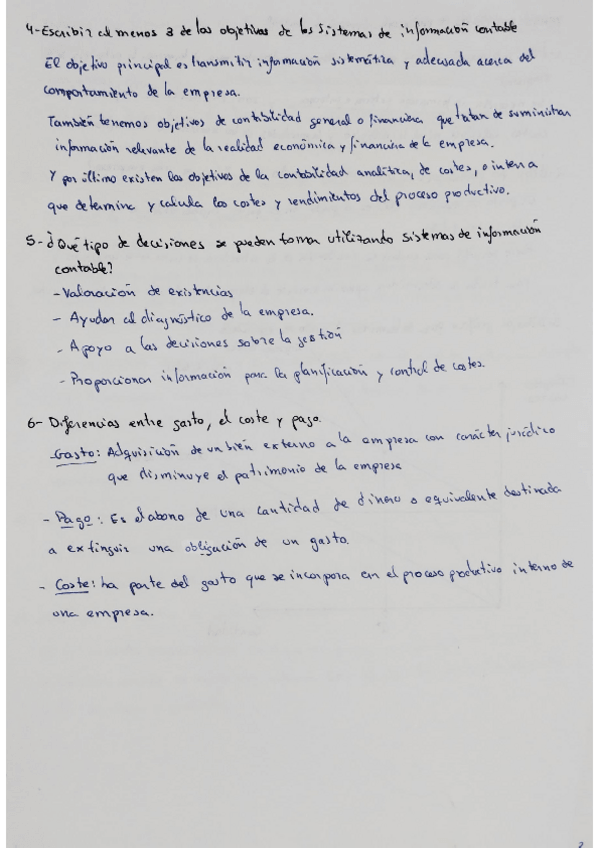 4-Escribir al menos 3 de los objetivos de los Sistemas de información contable
El objetivo principal es transmitir información sistemática y adecuada acerca del
comportamiento de la empresa.
También tenemos objetivos de contabilidad general o financiera que tratan de suministrar
información relevante de la realidad económica y financiera de la empresa.
Y por último existen los objetivos de la contabilidad analítica, de costes, o interna
que determina y calcula los costes y rendimientos del proceso productivo.
5- ¿Qué tipo de decisiones se pueden tomar utilizando sistemas de información
contable?
- Valoración de existencias
- Ayudar al diagnóstico de la empresa.
- Apoyo a las decisiones sobre la gestión
- Proporcionar información para la planificación y control de costes.
6- Diferencias entre gasto, el coste y pago.
- Gasto: Adquisición de un bien externo a la empresa con carácter jurídico
que disminuye el patrimonio de la empresa
- Pago: Es el abono de una cantidad de dinero o equivalente destinada
a extinguir una obligación de un gasto.
- Coste: La parte del gasto que se incorpora en el proceso productivo interno de
una empresa.
2